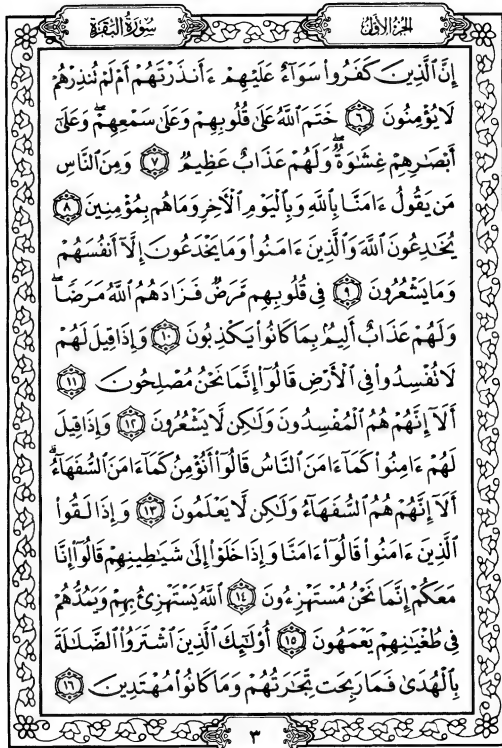 الجزء الأول
سورة البقرة
إِنَّ ٱلَّذِينَ كَفَرُواْ سَوَآءٌ عَلَيْهِمْ ءَأَنذَرْتَهُمْ أَمْ لَمْ تُنذِرْهُمْ
لَا يُؤْمِنُونَ ٦ خَتَمَ ٱللَّهُ عَلَىٰ قُلُوبِهِمْ وَعَلَىٰ سَمْعِهِمْۖ وَعَلَىٰٓ
أَبْصَٰرِهِمْ غِشَٰوَةٌۖ وَلَهُمْ عَذَابٌ عَظِيمٌ ٧ وَمِنَ ٱلنَّاسِ
مَن يَقُولُ ءَامَنَّا بِٱللَّهِ وَبِٱلْيَوْمِ ٱلْأَخِرِ وَمَا هُم بِمُؤْمِنِينَ ٨
يُخَٰدِعُونَ ٱللَّهَ وَٱلَّذِينَ ءَامَنُواْ وَمَا يَخْدَعُونَ إِلَّآ أَنفُسَهُمْ
وَمَا يَشْعُرُونَ ٩ فِى قُلُوبِهِم مَّرَضٌ فَزَادَهُمُ ٱللَّهُ مَرَضًاۖ
وَلَهُمْ عَذَابٌ أَلِيمٌۢ بِمَا كَانُواْ يَكْذِبُونَ ١٠ وَإِذَا قِيلَ لَهُمْ
لَا تُفْسِدُواْ فِى ٱلْأَرْضِ قَالُوٓاْ إِنَّمَا نَحْنُ مُصْلِحُونَ ١١
أَلَآ إِنَّهُمْ هُمُ ٱلْمُفْسِدُونَ وَلَٰكِن لَّا يَشْعُرُونَ ١٢ وَإِذَا قِيلَ
لَهُمْ ءَامِنُواْ كَمَآ ءَامَنَ ٱلنَّاسُ قَالُوٓاْ أَنُؤْمِنُ كَمَآ ءَامَنَ ٱلسُّفَهَآءُۗ
أَلَآ إِنَّهُمْ هُمُ ٱلسُّفَهَآءُ وَلَٰكِن لَّا يَعْلَمُونَ ١٣ وَإِذَا لَقُواْ
ٱلَّذِينَ ءَامَنُواْ قَالُوٓاْ ءَامَنَّا وَإِذَا خَلَوْاْ إِلَىٰ شَيَٰطِينِهِمْ قَالُوٓاْ إِنَّا
مَعَكُمْ إِنَّمَا نَحْنُ مُسْتَهْزِءُونَ ١٤ ٱللَّهُ يَسْتَهْزِئُ بِهِمْ وَيَمُدُّهُمْ
فِى طُغْيَٰنِهِمْ يَعْمَهُونَ ١٥ أُوْلَٰٓئِكَ ٱلَّذِينَ ٱشْتَرَوُاْ ٱلضَّلَٰلَةَ
بِٱلْهُدَىٰ فَمَا رَبِحَت تِّجَٰرَتُهُمْ وَمَا كَانُواْ مُهْتَدِينَ ١٦
٣